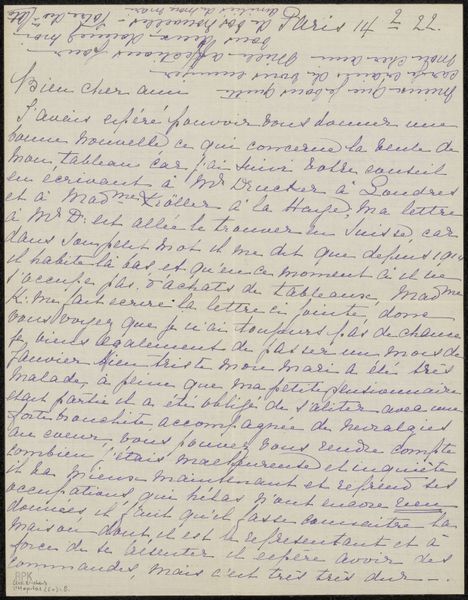 Paris 14 2/22.
Bien cher ami
J'avais espéré pouvoir vous donner une
bonne nouvelle ce qui concerne la vente de
mon tableau car j'ai suivi votre conseil
en écrivant à Mr Drucker à Londres
et à Madme Kröller à la Haye, Ma lettre
à Mr D. est allée le trouver en Suisse, car
dans son petit mot il me dit que depuis
il habite là bas, et qu'en ce moment ci il ne
s'occupe pas d'achats de tableaux, Madme
K. me fait écrire la lettre ci jointe, donc
vous voyez que je n'ai toujours pas de chance
Je viens également de passer un mois de
Janvier bien triste mon mari a été très
malade, à peine que ma petite pensionnaire
était partie il a été obligé de s'aliter avec une
forte bronchite, accompagnée de nevralgies
au cœur, vous pouvez vous rendre compte
combien j'étais malheureuse et inquiète
il va mieux maintenant et reprend ses
occupations, qui hélas n'ont encore rien
données il faut qu'il fasse connaitre la
maison dont il est le representant et à
force de se présenter il espère avoir des
commandes, mais c'est très très dur —.
RPK